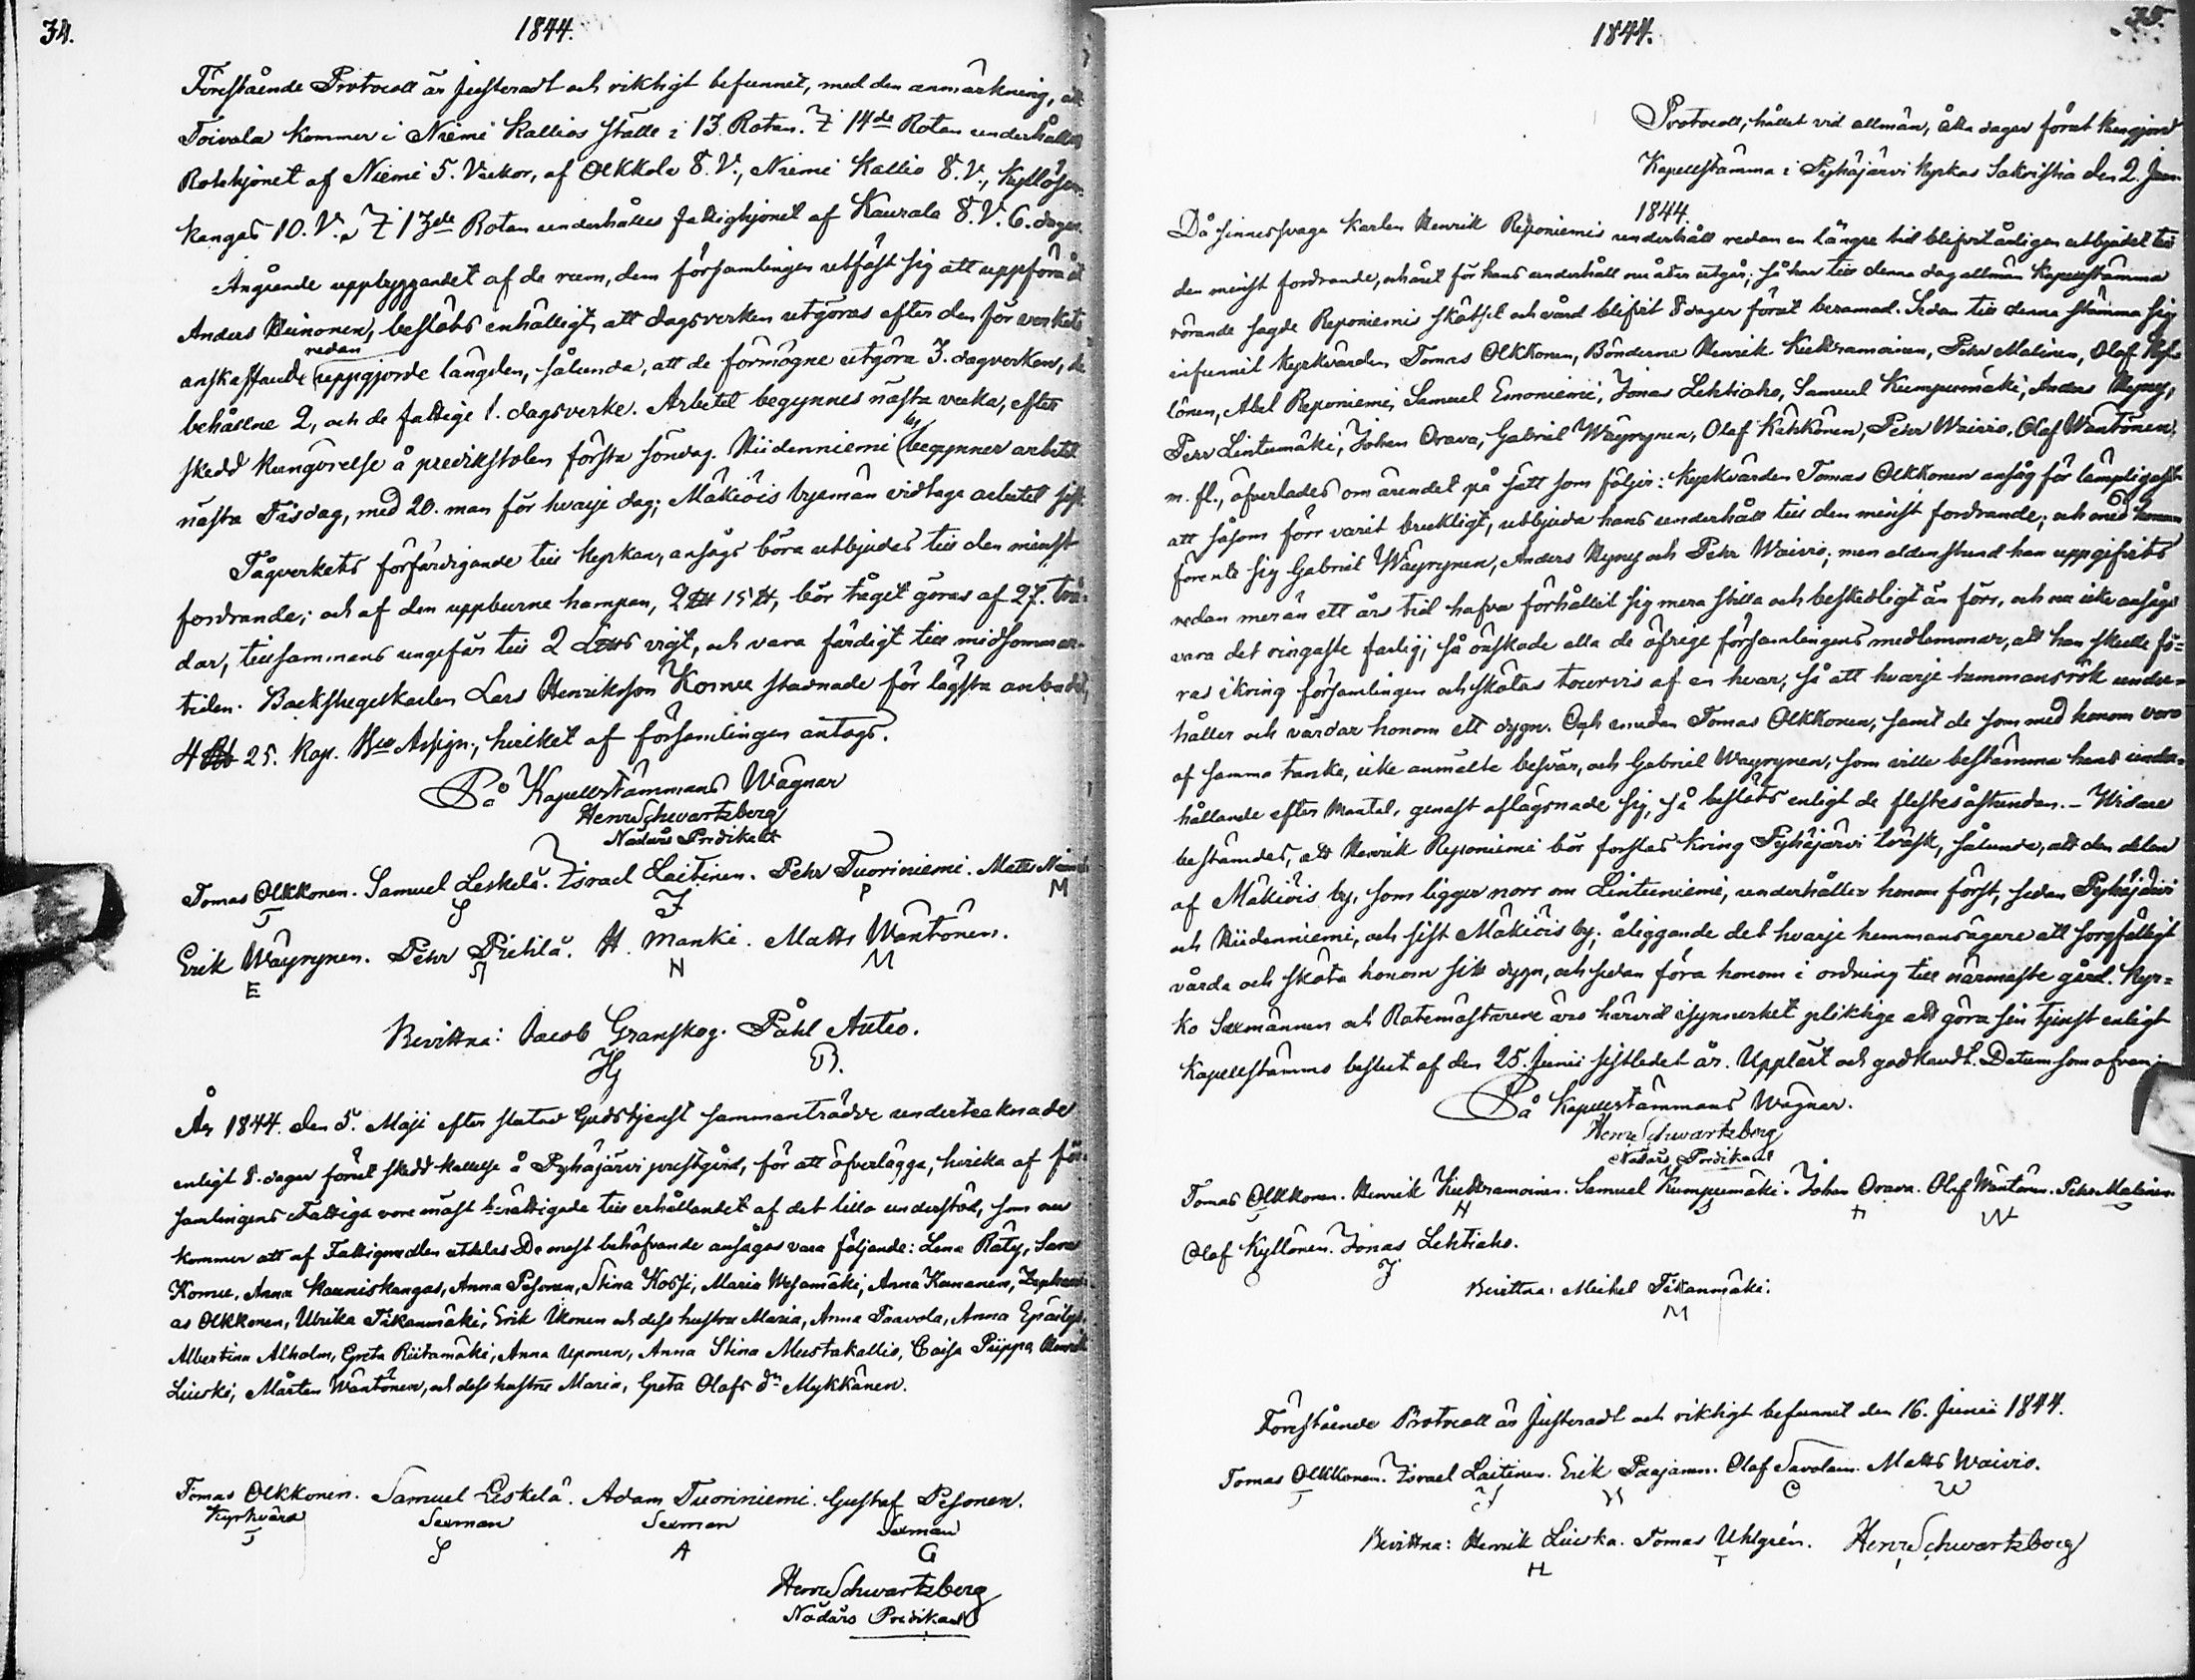 34.
1844.
Förestående Protocoll är justeradt och riktigt befunnet, med den anmärkning, att
Toivala kommer i Niemi Kallios ställe i 13. Rotan. I 14de Rotan underhålles
Rotehjonet af Niemi 5. Veckor, af Olkkola 8. V., Niemi Kallio 8. V., Kyllösen-
kangas 10. V., I 13de Rotan underhålles fattighjonet af Kaurala 8. V. 6. dagar.
Angående uppbyggandet af de rum, dem församlingen utfäst sig att uppföra åt
Anders Heinonen, beslöts enhälligt, att dagsverken utgöras efter den för verkets
anskaffande redan uppgjorde längden, sålunda, att de förmögne utgöra 3. dagsverken, de
behållne 2, och de fattige 1. dagsverke. Arbetet begynnes nästa vecka, efter
skedd kungörelse å predikstolen första söndag. Hiidenniemi by begynner arbetet
nästa Tisdag, med 20. man för hvarje dag; Mäkiöis byemän vidtaga arbetet sist.
Tågverkets förfärdigande till kyrkan, ansågs böra utbjudas till den minst
fordrande; och af den uppburne hampan, 2 L℔ 15 ℔, bör tåget göras af 27. trå-
dar, tillsammans ungefär till 2 L℔s vigt, och vara färdigt till midsommar-
tiden. Backstugukarlen Lars Henriksson Komu stadnade för lägsta anbudet,
4 Rb 25. Kop. Bco Assign., hvilket af församlingen antogs.
På Kapellstämmans Wägnar
Henr. Schwartzberg
Nådårs Predikant
Tomas Olkkonen. Samuel Leskelä. Israel Laitinen. Pehr Tuoriniemi. Matts Niemi
T S I P M
Erik Wäyrynen. Pehr Pietilä. H. Manki. Matts Wäntönen.
E P H M
Bevittna: Jacob Granskog. Påhl Autio.
JG P.
År 1844. den 5. Maji efter slutad Gudstjenst sammanträdde undertecknade
enligt 8. dagar förut skedd kallelse å Pyhäjärvi prestgård, för att öfverlägga, hvilka af för-
samlingens Fattiga vore mäst berättigade till erhållandet af det lilla understöd, som nu
kommer att af Fattigmedlen utdelas. De mest behöfvande ansågos vara följande: Lena Räty, Sara
Komu, Anna Kauniskangas, Anna Pesonen, Stina Kossi, Maria Wesamäki, Anna Kananen, Zephani-
as Olkkonen, Ulrika Tikanmäki, Erik Ikonen och dess hustru Maria, Anna Paavola, Anna Epäilys,
Albertina Alholm, Greta Riitamäki, Anna Uponen, Anna Stina Mustakallio, Caisa Piippo, Henrik
Liuska, Mårten Wäntönen, och dess hustru Maria, Greta Olafs dr Mykkänen.
Tomas Olkkonen. Samuel Leskelä. Adam Tuoriniemi. Gustaf Pesonen.
Kyrkvärd Sexman Sexman Sexman
T S A G
Henr. Schwartzberg
Nådårs Predikant
35.
1844.
Protocoll, hållet vid allmän, åtta dagar förut kungjord
Kapellstämma i Pyhäjärvi Kyrkas Sakristia den 2. Juni
1844.
Då sinnessvage karlen Henrik Reponiemis underhåll redan en längre tid blifvit årligen utbjudet till
den minst fordrande, och året för hans underhåll nu åter utgår; så har till denna dag allmän Kapellstämma
rörande sagde Reponiemis skötsel och vård blifvit 8 dagar förut beramad. Sedan till denna stämma sig
infunnit Kyrkvärden Tomas Olkkonen, Bönderne Henrik Kukkramoinen, Pehr Malinen, Olof Kyl-
lönen, Abel Reponiemi, Samuel Emoniemi, Jonas Lehtiaho, Samuel Kumpumäki, Anders Nyny,
Pehr Lintumäki, Johan Orava, Gabriel Wäyrynen, Olof Kähkönen, Pehr Waivio, Olof Wäntönen,
m. fl., öfverlades om ärendet på sätt som följer: Kyrkvärden Tomas Olkkonen ansåg för lämpligast
att såsom förr varit brukligt, utbjuda hans underhåll till den minst fordrande; och med honom
förente sig Gabriel Wäyrynen, Anders Nyny och Pehr Waivio; men aldenstund han uppgifvits
redan mer än ett års tid hafva förhållit sig mera stilla och beskedligt än förr, och nu icke ansågs
vara det ringaste farlig, så önskade alla de öfrige församlingens medlemmar, att han skulle fö-
ras ikring församlingen och skötas tourvis af en hvar, så att hvarje hemmansrök under-
håller och vårdar honom ett dygn. Och emedan Tomas Olkkonen, samt de som med honom voro
af samma tanke, icke anmälte besvär, och Gabriel Wäyrynen, som ville bestämma hans under-
hållande efter Mantal, genast aflägsnade sig, så beslöts enligt de flestes åstundan. – Widare
bestämdes, att Henrik Reponiemi bör forslas kring Pyhäjärvi träsk, sålunda, att den delen
af Mäkiöis by, som ligger norr om Lintuniemi, underhåller honom först, sedan Pyhäjärvi
och Hiidenniemi, och sist Mäkiöis by; åliggande det hvarje hemmansägare att sorgfälligt
vårda och sköta honom sitt dygn, och sedan föra honom i ordning till närmaste gård. Kyr-
ko Sexmännen och Rotemästarene äro härvid isynnerhet pliktige att göra sin tjenst enligt
Kapellstämmo beslut af den 25. Junii sistledet år. Uppläst och godkändt. Datum som ofvan
På Kapellstämmans Wägnar.
Henr. Schwartzberg
Nådårs Predikant
Tomas Olkkonen. Henrik Kukkramoinen. Samuel Kumpumäki. Johan Orava. Olof Wäntönen. Pehr Malinen.
T H S H W
Olof Kyllönen. Jonas Lehtiaho.
O J
Bevittna: Michel Tikanmäki.
M
Förestående Protocoll är justeradt och riktigt befunnet den 16. Junii 1844.
Tomas Olkkonen. Israel Laitinen. Erik Paajanen. Olof Savolain. Matts Waivio.
T I O W
Bevittna: Henrik Liuska. Tomas Uhlgrén. Henr. Schwartzberg
H T